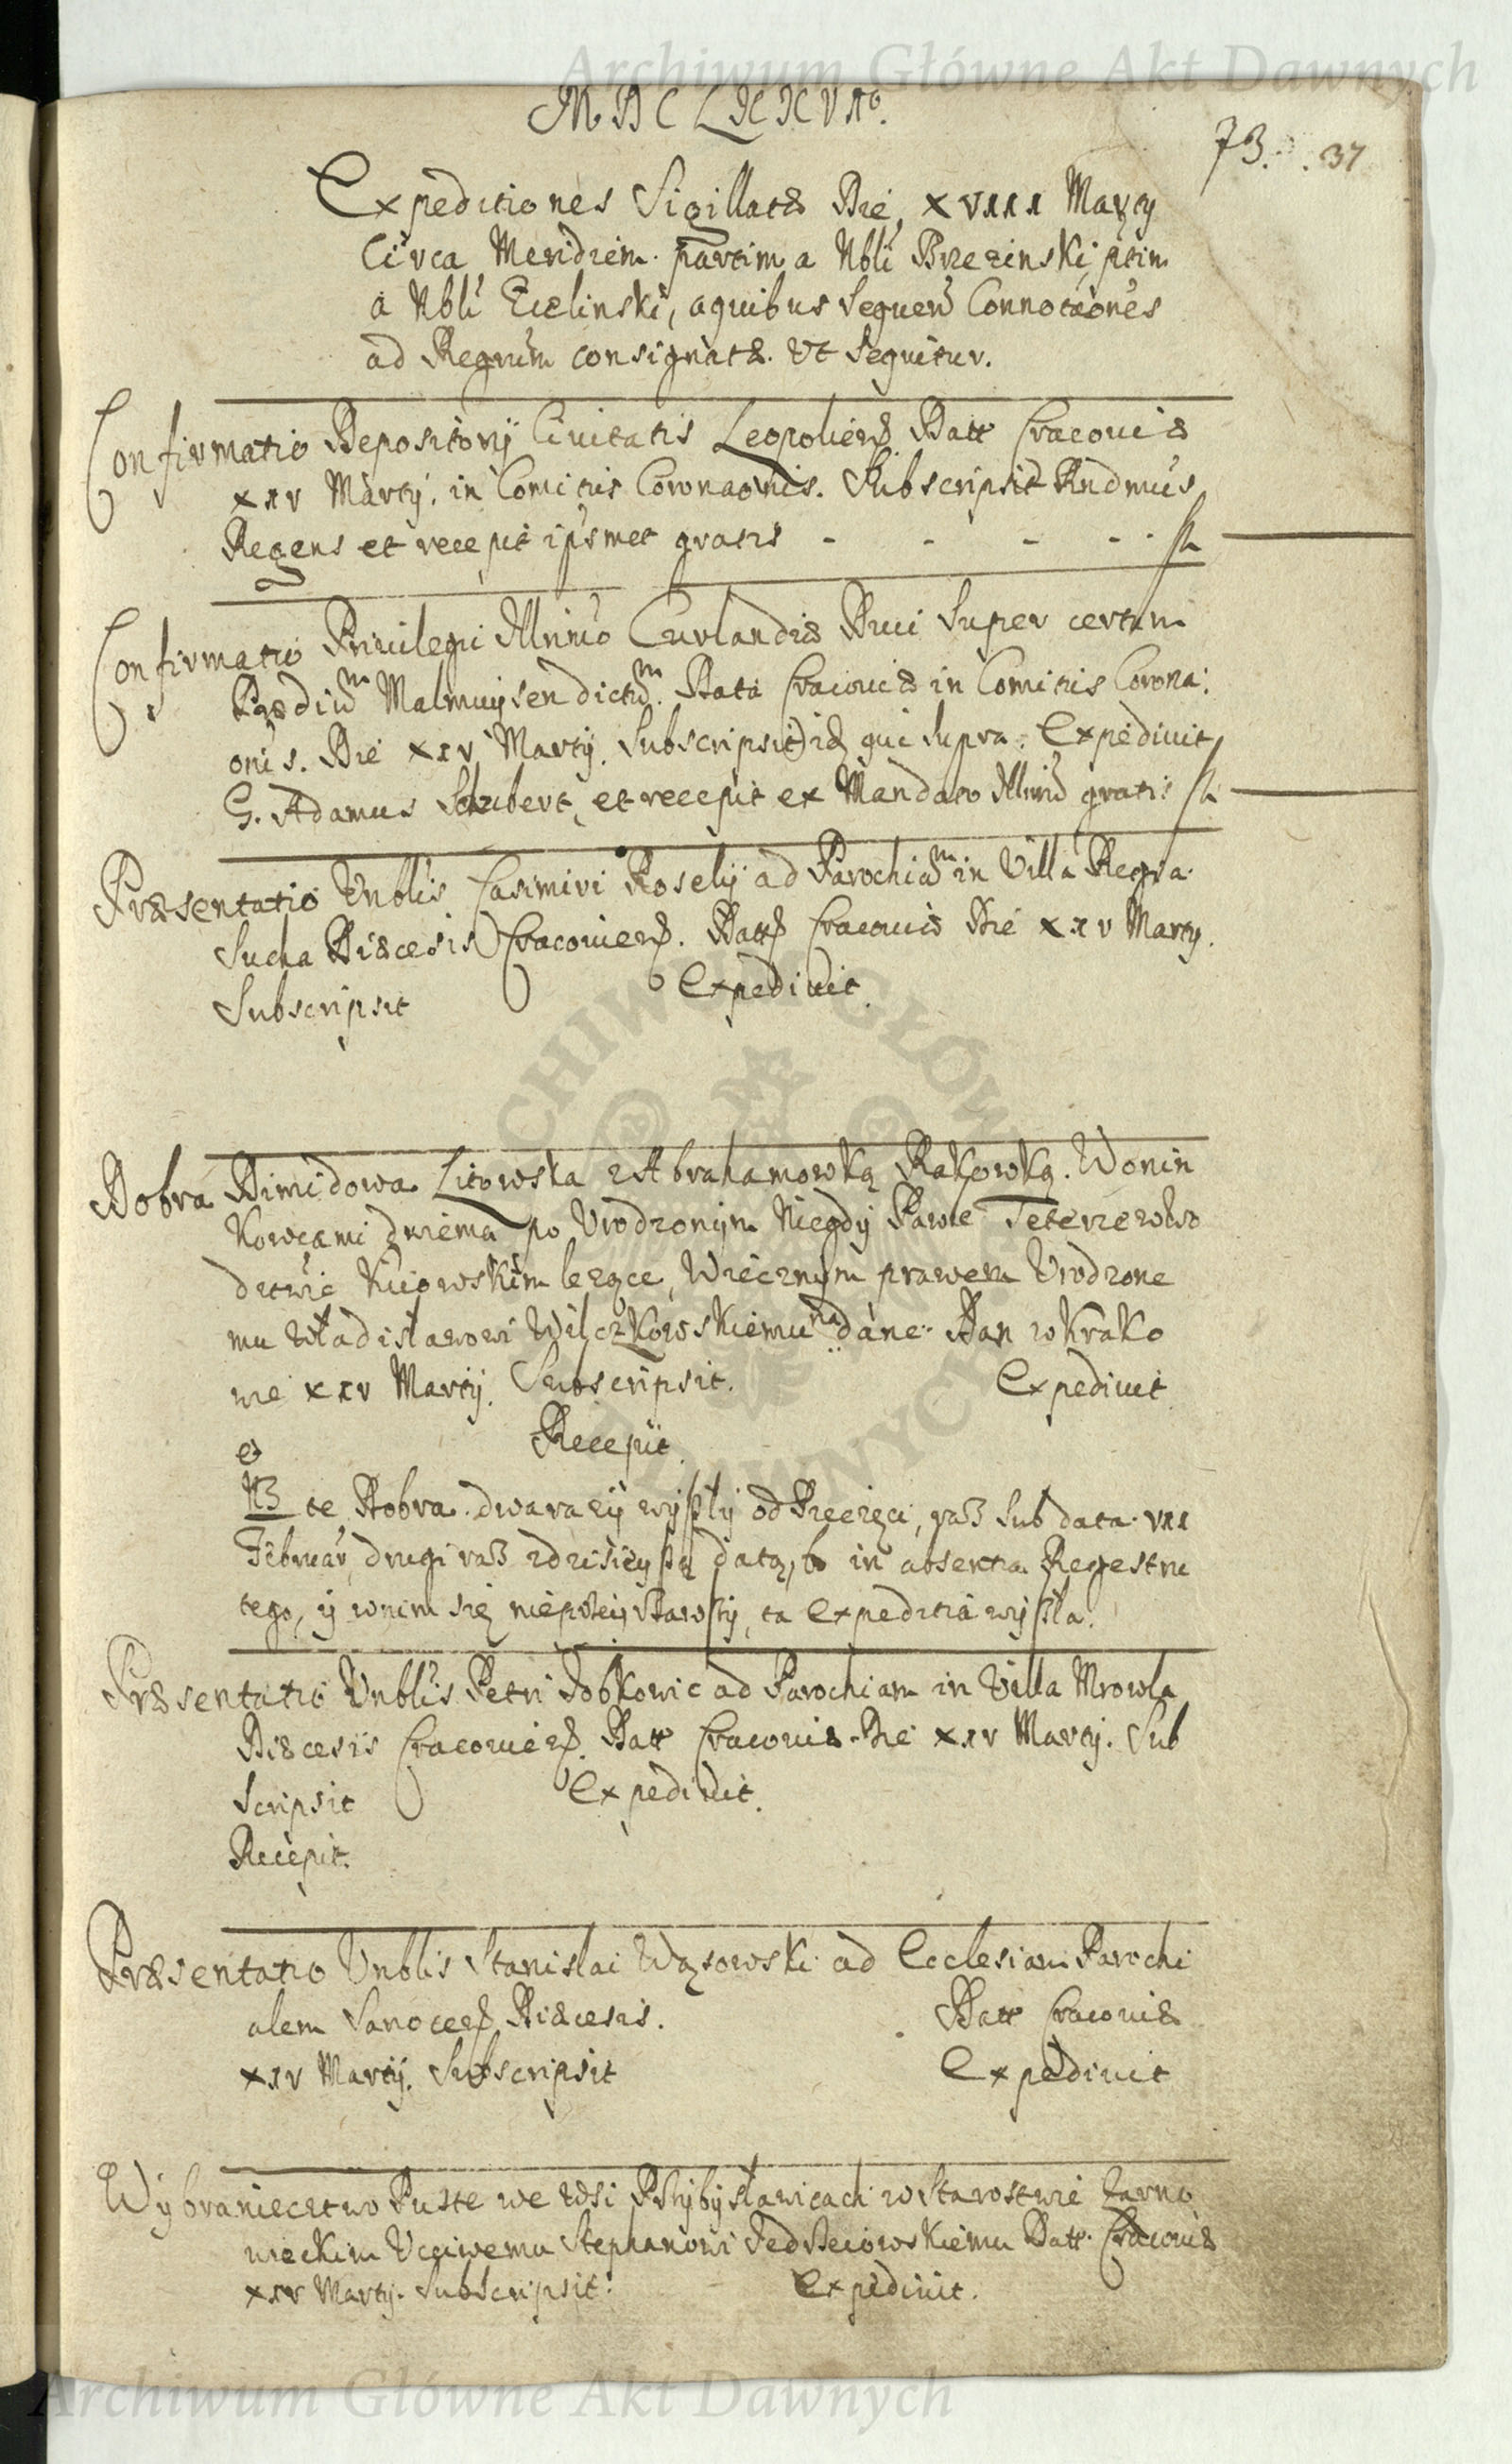 Archiwum Główne Akt Dawnych
MDCLXXVIº.
73. . 37
Expeditiones Sigillatæ Die XVIII Martÿ
Circa Meridiem. partim a Nbli Brzezinski, ptim
a Nbli Zielinski, a quibus sequen Connotaones
ad Regrum consignatæ. Ut sequitur.
Confirmatio Depositorÿ Ciuitatis Leopolien. Datt Cracouiæ
XIV Martÿ. in Comitiis Coronaonis. Subscripsit Rndmus
Regens et recepit ipsmet gratis - - - - -
Confirmatio Priuilegii Illrimo Curlandiæ Duci Super certum
Prædium Malmuysen dictum. Data Cracouiæ in Comitiis Corona:
onis. Die XIV Martÿ. Subscripsit id qui supra. Expediuit
G. Adamus Schubert, et recepit ex Mandato Illrimi gratis
Præsentatio Vnblis Casimiri Roselÿ ad Parochiam in Villa Regia
Sucha Diæcesis Cracouien. Datt Cracouiæ Die XIV Martÿ.
Subscripsit Expediuit.
Dobra Dimidowa Litowska z Abrahamowką Rakowką. Wonin
kowcami dwiema po Vrodzonÿm Niegdÿ Pawle Teterze w Wo
dztwie Kiiowskim lezące, Wiecznÿm prawem Vrodzone
mu Władisławowi Wilczkowskiemu na dane. Dan w Krako
wie XIV Martÿ. Subscripsit. Expediuit.
et Recepit.
NB te Dobra dwa razÿ wÿszłÿ od Pieczęci, raz sub data VII
Februar, drugi raz z dzisieÿszą datą, bo in absentia Regestru
tego, ÿ w nim się nie wÿszłÿ, ta Expeditia wÿszła.
Præsentatio Vnblis Petri Bobkowic ad Parochiam in Villa Mrowla
Diæcesis Cracouien. Datt Cracouiæ Die XIV Martÿ. Sub
scripsit Expediuit.
Recepit.
Præsentatio Vnblis Stanislai Wąsowski ad Ecclesiam Parochi
alem Sanocen. Diæcesis. Datt Cracouiæ
XIV Martÿ. Subscripsit Expediuit
Wÿbraniectwo Puste we Wsi Przÿbÿsławicach w Starostwie Zarno
wieckim Vcciwemu Stephanowi Datt. Cracouiæ
XIV Martÿ. Subscripsit. Expediuit.
Archiwum Główne Akt Dawnych